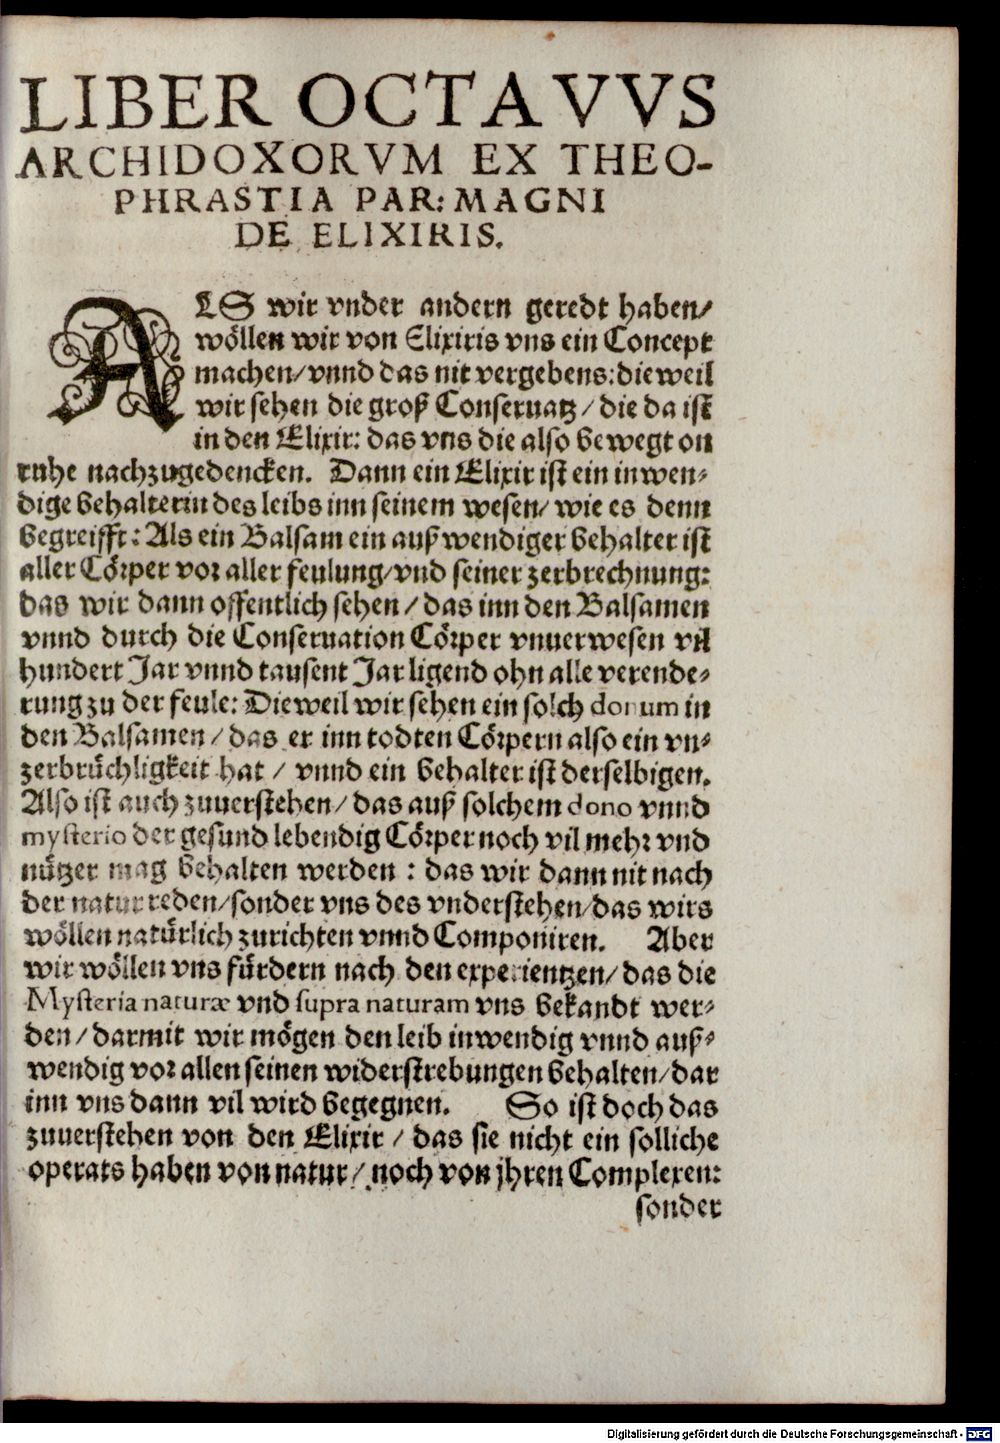 LIBER OCTAVVS
ARCHIDOXORVM EX THEO-
PHRASTIA PAR: MAGNI
DE ELIXIRIS.
ALS wir vnder andern geredt haben/
wöllen wir von Elixiris vns ein Concept
machen/vnnd das nit vergebens: dieweil
wir sehen die groß Conseruatz/die da ist
in den Elixir: das vns die also bewegt on
ruhe nachzugedencken. Dann ein Elixir ist ein inwen-
dige behalterin des leibs inn seinem wesen/ wie es denn
begreifft: Als ein Balsam ein außwendiger behalter ist
aller Cörper vor aller feulung/vnd seiner zerbrechnung:
das wir dann offentlich sehen/das inn den Balsamen
vnnd durch die Conseruation Cörper vnuerwesen vil
hundert Jar vnnd tausent Jar ligend ohn alle verende-
rung zu der feule: Dieweil wir sehen ein solch donum in
den Balsamen/das er inn todten Cörpern also ein vn-
zerbrüchligkeit hat/ vnnd ein behalter ist derselbigen.
Also ist auch zuuerstehen/das auß solchem dono vnnd
mysterio der gesund lebendig Cörper noch vil mehr vnd
nützer mag behalten werden: das wir dann nit nach
der natur reden/sonder vns des vnderstehen/das wirs
wöllen natürlich zurichten vnnd Componiren. Aber
wir wöllen vns fürdern nach den experientzen/das die
Mysteria naturæ vnd supra naturam vns bekandt wer-
den/darmit wir mögen den leib inwendig vnnd auß-
wendig vor allen seinen widerstrebungen behalten/dar
inn vns dann vil wird begegnen. So ist doch das
zuuerstehen von den Elixir/das sie nicht ein solliche
operats haben von natur/noch von jhren Complexen:
sonder
Digitalisierung gefördert durch die Deutsche Forschungsgemeinschaft - DFG